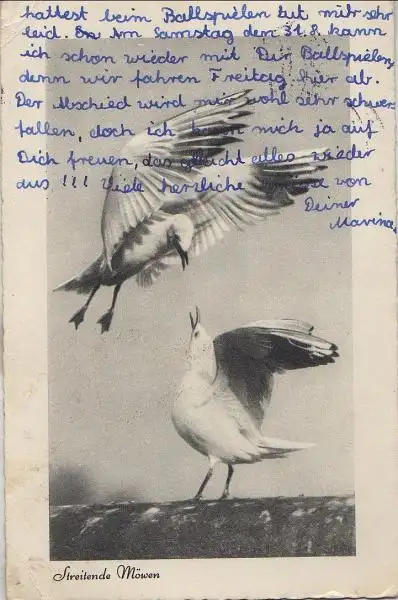 hattest beim Ballspielen tut mir sehr
leid. Am Samstag den 31.8. kann
ich schon wieder mit Dir Ballspielen,
denn wir fahren Freitag hier ab.
Der Abschied wird mir wohl sehr schwer
fallen, doch ich kann mich ja auf
Dich freuen, das gleicht alles wieder
aus !!! Viele herzliche von
Deiner
Marina
Streitende Möwen